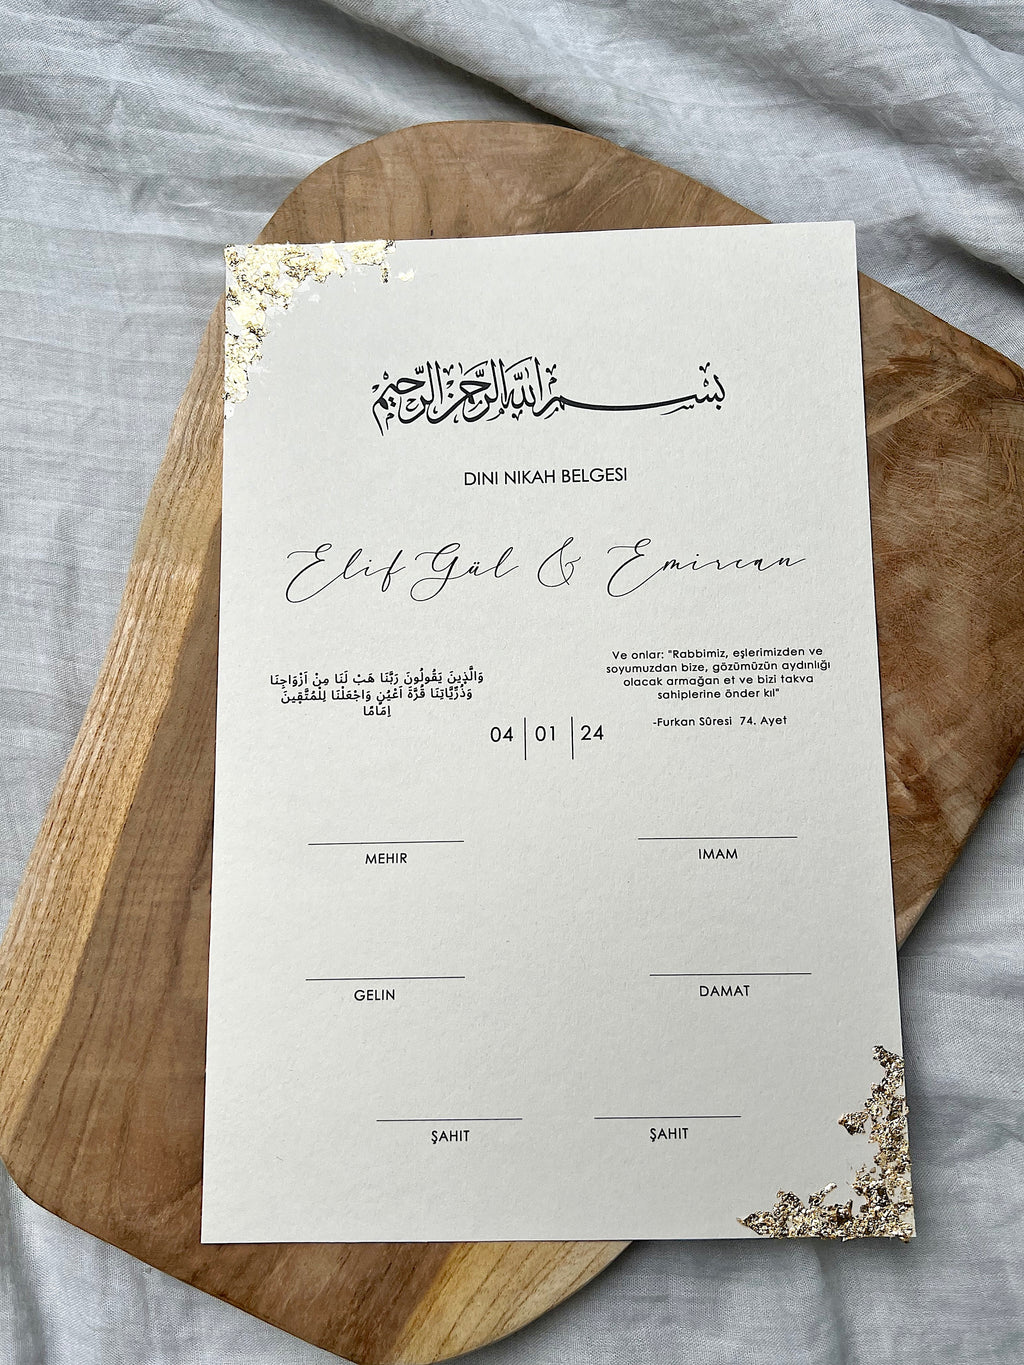 بسم الله الرحمن الرحيم
DINI NIKAH BELGESI
Elif Gül & Emircan
وَالَّذِينَ يَقُولُونَ رَبَّنَا هَبْ لَنَا مِنْ اَزْوَاجِنَا
وَذُرِّيَّاتِنَا قُرَّةَ اَعْيُنٍ وَاجْعَلْنَا لِلْمُتَّقِينَ
اِمَامًا
Ve onlar: "Rabbimiz, eşlerimizden ve
soyumuzdan bize, gözümüzün aydınlığı
olacak armağan et ve bizi takva
sahiplerine önder kıl"
-Furkan Sûresi 74. Ayet
04 | 01 | 24
MEHIR
IMAM
GELIN
DAMAT
ŞAHIT
ŞAHIT